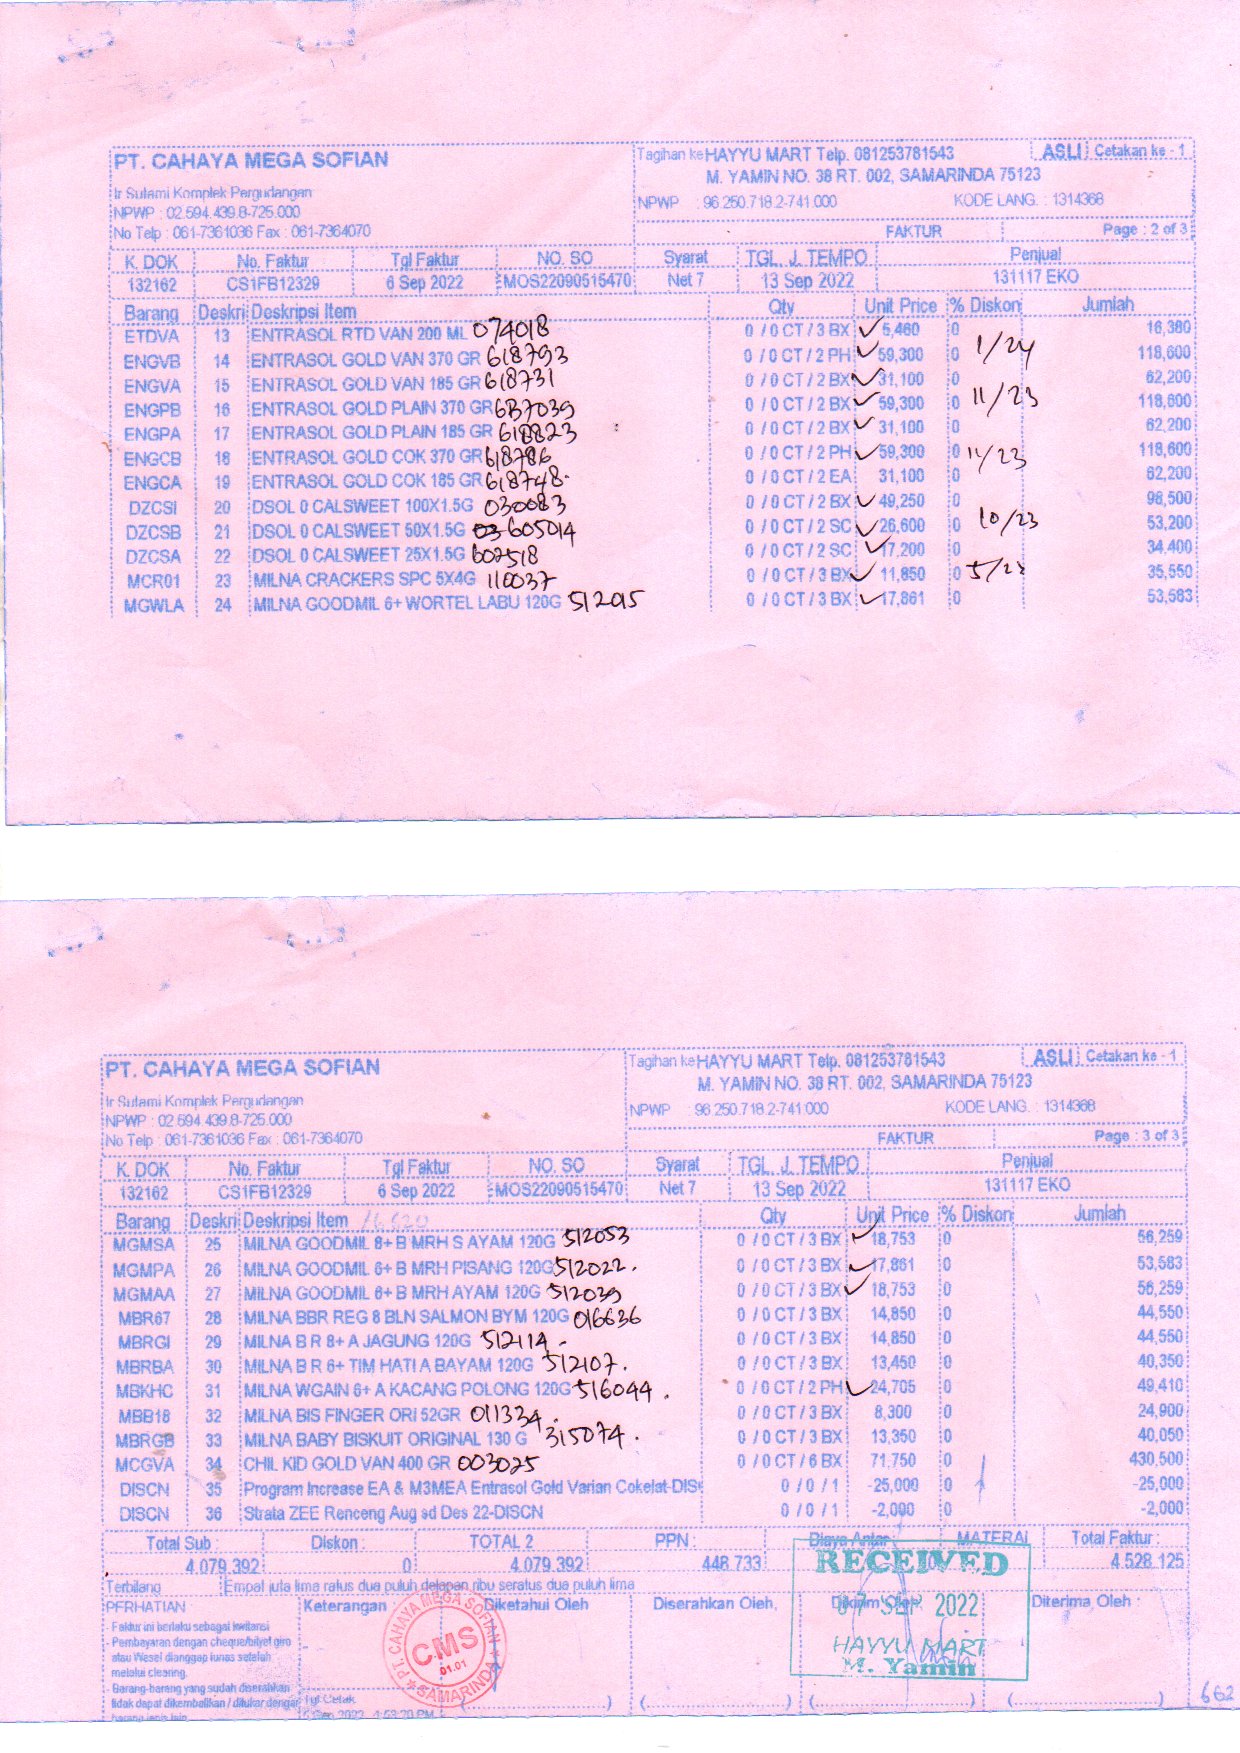 PT. CAHAYA MEGA SOFIAN
Ir Sutami Komplek Pergudangan
NPWP : 02.594.439.8-725.000
No Telp : 061-7361036 Fax : 061-7364070
Tagihan ke HAYYU MART Telp. 081253781543 ASLI Cetakan ke - 1
M. YAMIN NO. 38 RT. 002, SAMARINDA 75123
NPWP : 96.250.718.2-741.000 KODE LANG. : 1314368
FAKTUR Page : 2 of 3
K. DOK No. Faktur Tgl Faktur NO. SO Syarat TGL. J. TEMPO Penjual
132162 CS1FB12329 6 Sep 2022 EMOS22090515470 Net 7 13 Sep 2022 131117 EKO
Barang Deskri Deskripsi Item Qty Unit Price % Diskon Jumlah
ETDVA 13 ENTRASOL RTD VAN 200 ML 074018 0 / 0 CT / 3 BX ✓ 5,460 0 16,380
ENGVB 14 ENTRASOL GOLD VAN 370 GR 618793 0 / 0 CT / 2 PH ✓ 59,300 0 1/24 118,600
ENGVA 15 ENTRASOL GOLD VAN 185 GR 618731 0 / 0 CT / 2 BX ✓ 31,100 0 62,200
ENGPB 16 ENTRASOL GOLD PLAIN 370 GR 0 / 0 CT / 2 BX ✓ 59,300 0 11/23 118,600
ENGPA 17 ENTRASOL GOLD PLAIN 185 GR 618823 0 / 0 CT / 2 BX ✓ 31,100 0 62,200
ENGCB 18 ENTRASOL GOLD COK 370 GR 618786 0 / 0 CT / 2 PH ✓ 59,300 0 11/23 118,600
ENGCA 19 ENTRASOL GOLD COK 185 GR 618748. 0 / 0 CT / 2 EA 31,100 0 62,200
DZCSI 20 DSOL 0 CALSWEET 100X1.5G 030083 0 / 0 CT / 2 BX ✓ 49,250 0 98,500
DZCSB 21 DSOL 0 CALSWEET 50X1.5G 605014 0 / 0 CT / 2 SC ✓ 26,600 0 10/23 53,200
DZCSA 22 DSOL 0 CALSWEET 25X1.5G 602518 0 / 0 CT / 2 SC ✓ 17,200 0 34,400
MCR01 23 MILNA CRACKERS SPC 5X4G 110037 0 / 0 CT / 3 BX ✓ 11,850 0 5/23 35,550
MGWLA 24 MILNA GOODMIL 6+ WORTEL LABU 120G 512015 0 / 0 CT / 3 BX ✓ 17,861 0 53,583
PT. CAHAYA MEGA SOFIAN
Ir Sutami Komplek Pergudangan
NPWP : 02.594.439.8-725.000
No Telp : 061-7361036 Fax : 061-7364070
Tagihan ke HAYYU MART Telp. 081253781543 ASLI Cetakan ke - 1
M. YAMIN NO. 38 RT. 002, SAMARINDA 75123
NPWP : 96.250.718.2-741.000 KODE LANG. : 1314368
FAKTUR Page : 3 of 3
K. DOK No. Faktur Tgl Faktur NO. SO Syarat TGL. J. TEMPO Penjual
132162 CS1FB12329 6 Sep 2022 EMOS22090515470 Net 7 13 Sep 2022 131117 EKO
Barang Deskri Deskripsi Item Qty Unit Price % Diskon Jumlah
MGMSA 25 MILNA GOODMIL 8+ B MRH S AYAM 120G 512053 0 / 0 CT / 3 BX ✓ 18,753 0 56,259
MGMPA 26 MILNA GOODMIL 6+ B MRH PISANG 120G 512022. 0 / 0 CT / 3 BX ✓ 17,861 0 53,583
MGMAA 27 MILNA GOODMIL 6+ B MRH AYAM 120G 512039 0 / 0 CT / 3 BX ✓ 18,753 0 56,259
MBR67 28 MILNA BBR REG 8 BLN SALMON BYM 120G 016636 0 / 0 CT / 3 BX 14,850 0 44,550
MBRGI 29 MILNA B R 8+ A JAGUNG 120G 512114 - 0 / 0 CT / 3 BX 14,850 0 44,550
MBRBA 30 MILNA B R 6+ TIM HATI A BAYAM 120G 512107. 0 / 0 CT / 3 BX 13,450 0 40,350
MBKHC 31 MILNA WGAIN 6+ A KACANG POLONG 120G 516044. 0 / 0 CT / 2 PH ✓ 24,705 0 49,410
MBB18 32 MILNA BIS FINGER ORI 52GR 011334. 0 / 0 CT / 3 BX 8,300 0 24,900
MBRGB 33 MILNA BABY BISKUIT ORIGINAL 130 G 315074. 0 / 0 CT / 3 BX 13,350 0 40,050
MCGVA 34 CHIL KID GOLD VAN 400 GR 003025 0 / 0 CT / 6 BX 71,750 0 430,500
DISCN 35 Program Increase EA & M3MEA Entrasol Gold Varian Cokelat-DIS 0 / 0 / 1 -25,000 0 -25,000
DISCN 36 Strata ZEE Renceng Aug sd Des 22-DISCN 0 / 0 / 1 -2,000 0 -2,000
Total Sub : Diskon : TOTAL 2 PPN : Biaya Antar : MATERAI Total Faktur :
4.079.392 0 4.079.392 448.733 4.528.125
Terbilang Empat juta lima ratus dua puluh delapan ribu seratus dua puluh lima
PERHATIAN : Keterangan Diketahui Oleh Diserahkan Oleh, Dikirim Oleh, Diterima Oleh :
- Faktur ini berlaku sebagai kwitansi
- Pembayaran dengan cheque/bilyet giro
atau Wesel dianggap lunas setelah
melalui clearing.
- Barang-barang yang sudah diserahkan
tidak dapat dikembalikan / ditukar dengan
barang jenis lain
Tgl Cetak
PT. CAHAYA MEGA SOFIAN
CMS
01.01
SAMARINDA
RECEIVED
07 SEP 2022
HAYYU MART
M. Yamin
662